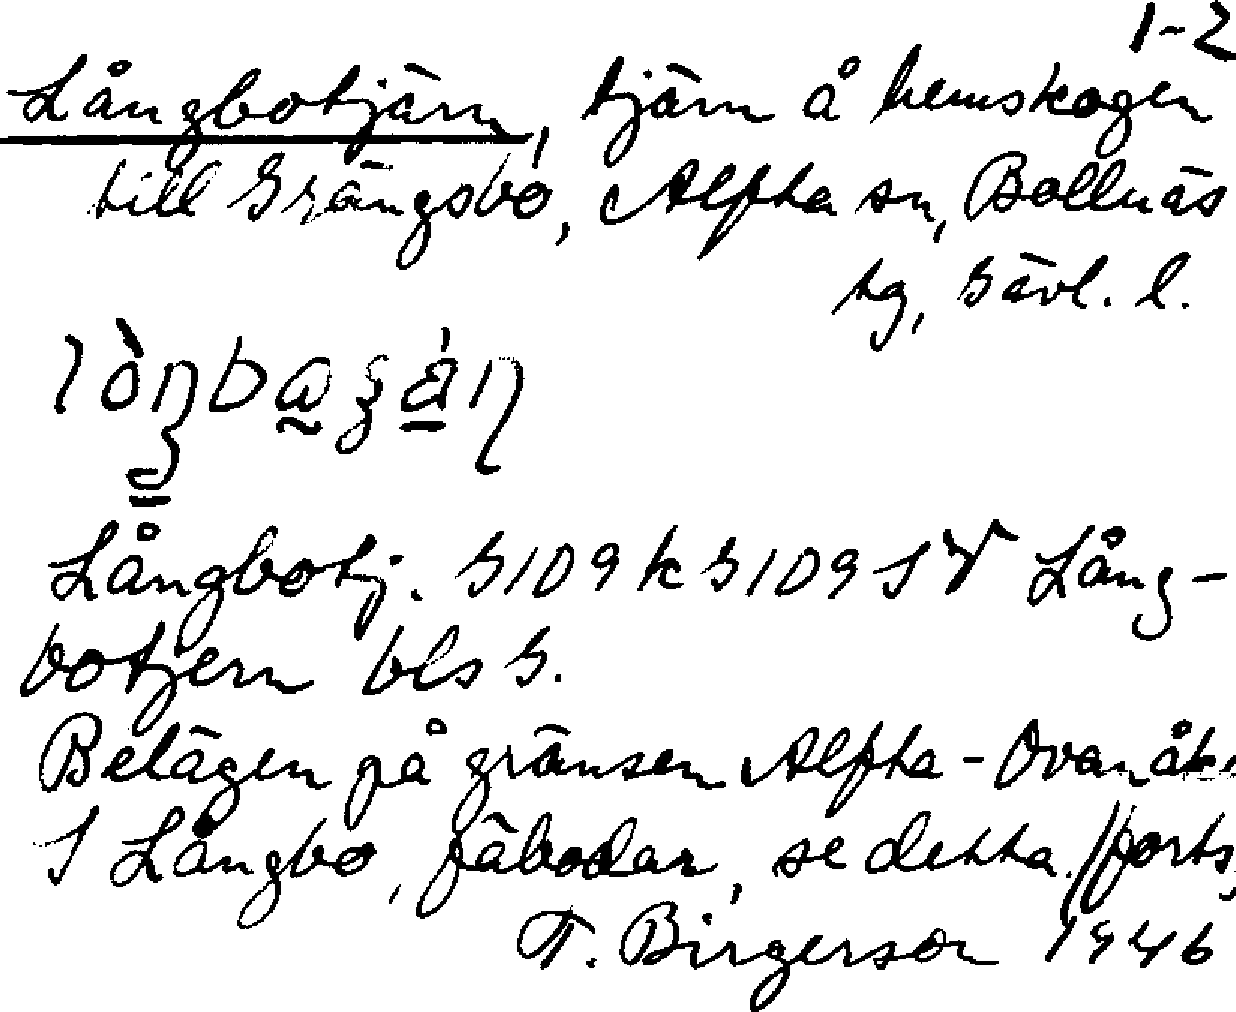 1-2
Långbotjärn, tjärn å hemskogen
till Grängsbo, Alfta sn, Bollnäs
tg, Gävl. l.
Långbotj. G109 k G109 SV Lång-
botjern bls G.
Belägen på gränsen Alfta - Ovanåk.
S Långbo, fäbodar, se detta. // forts,
T. Birgerson 1946